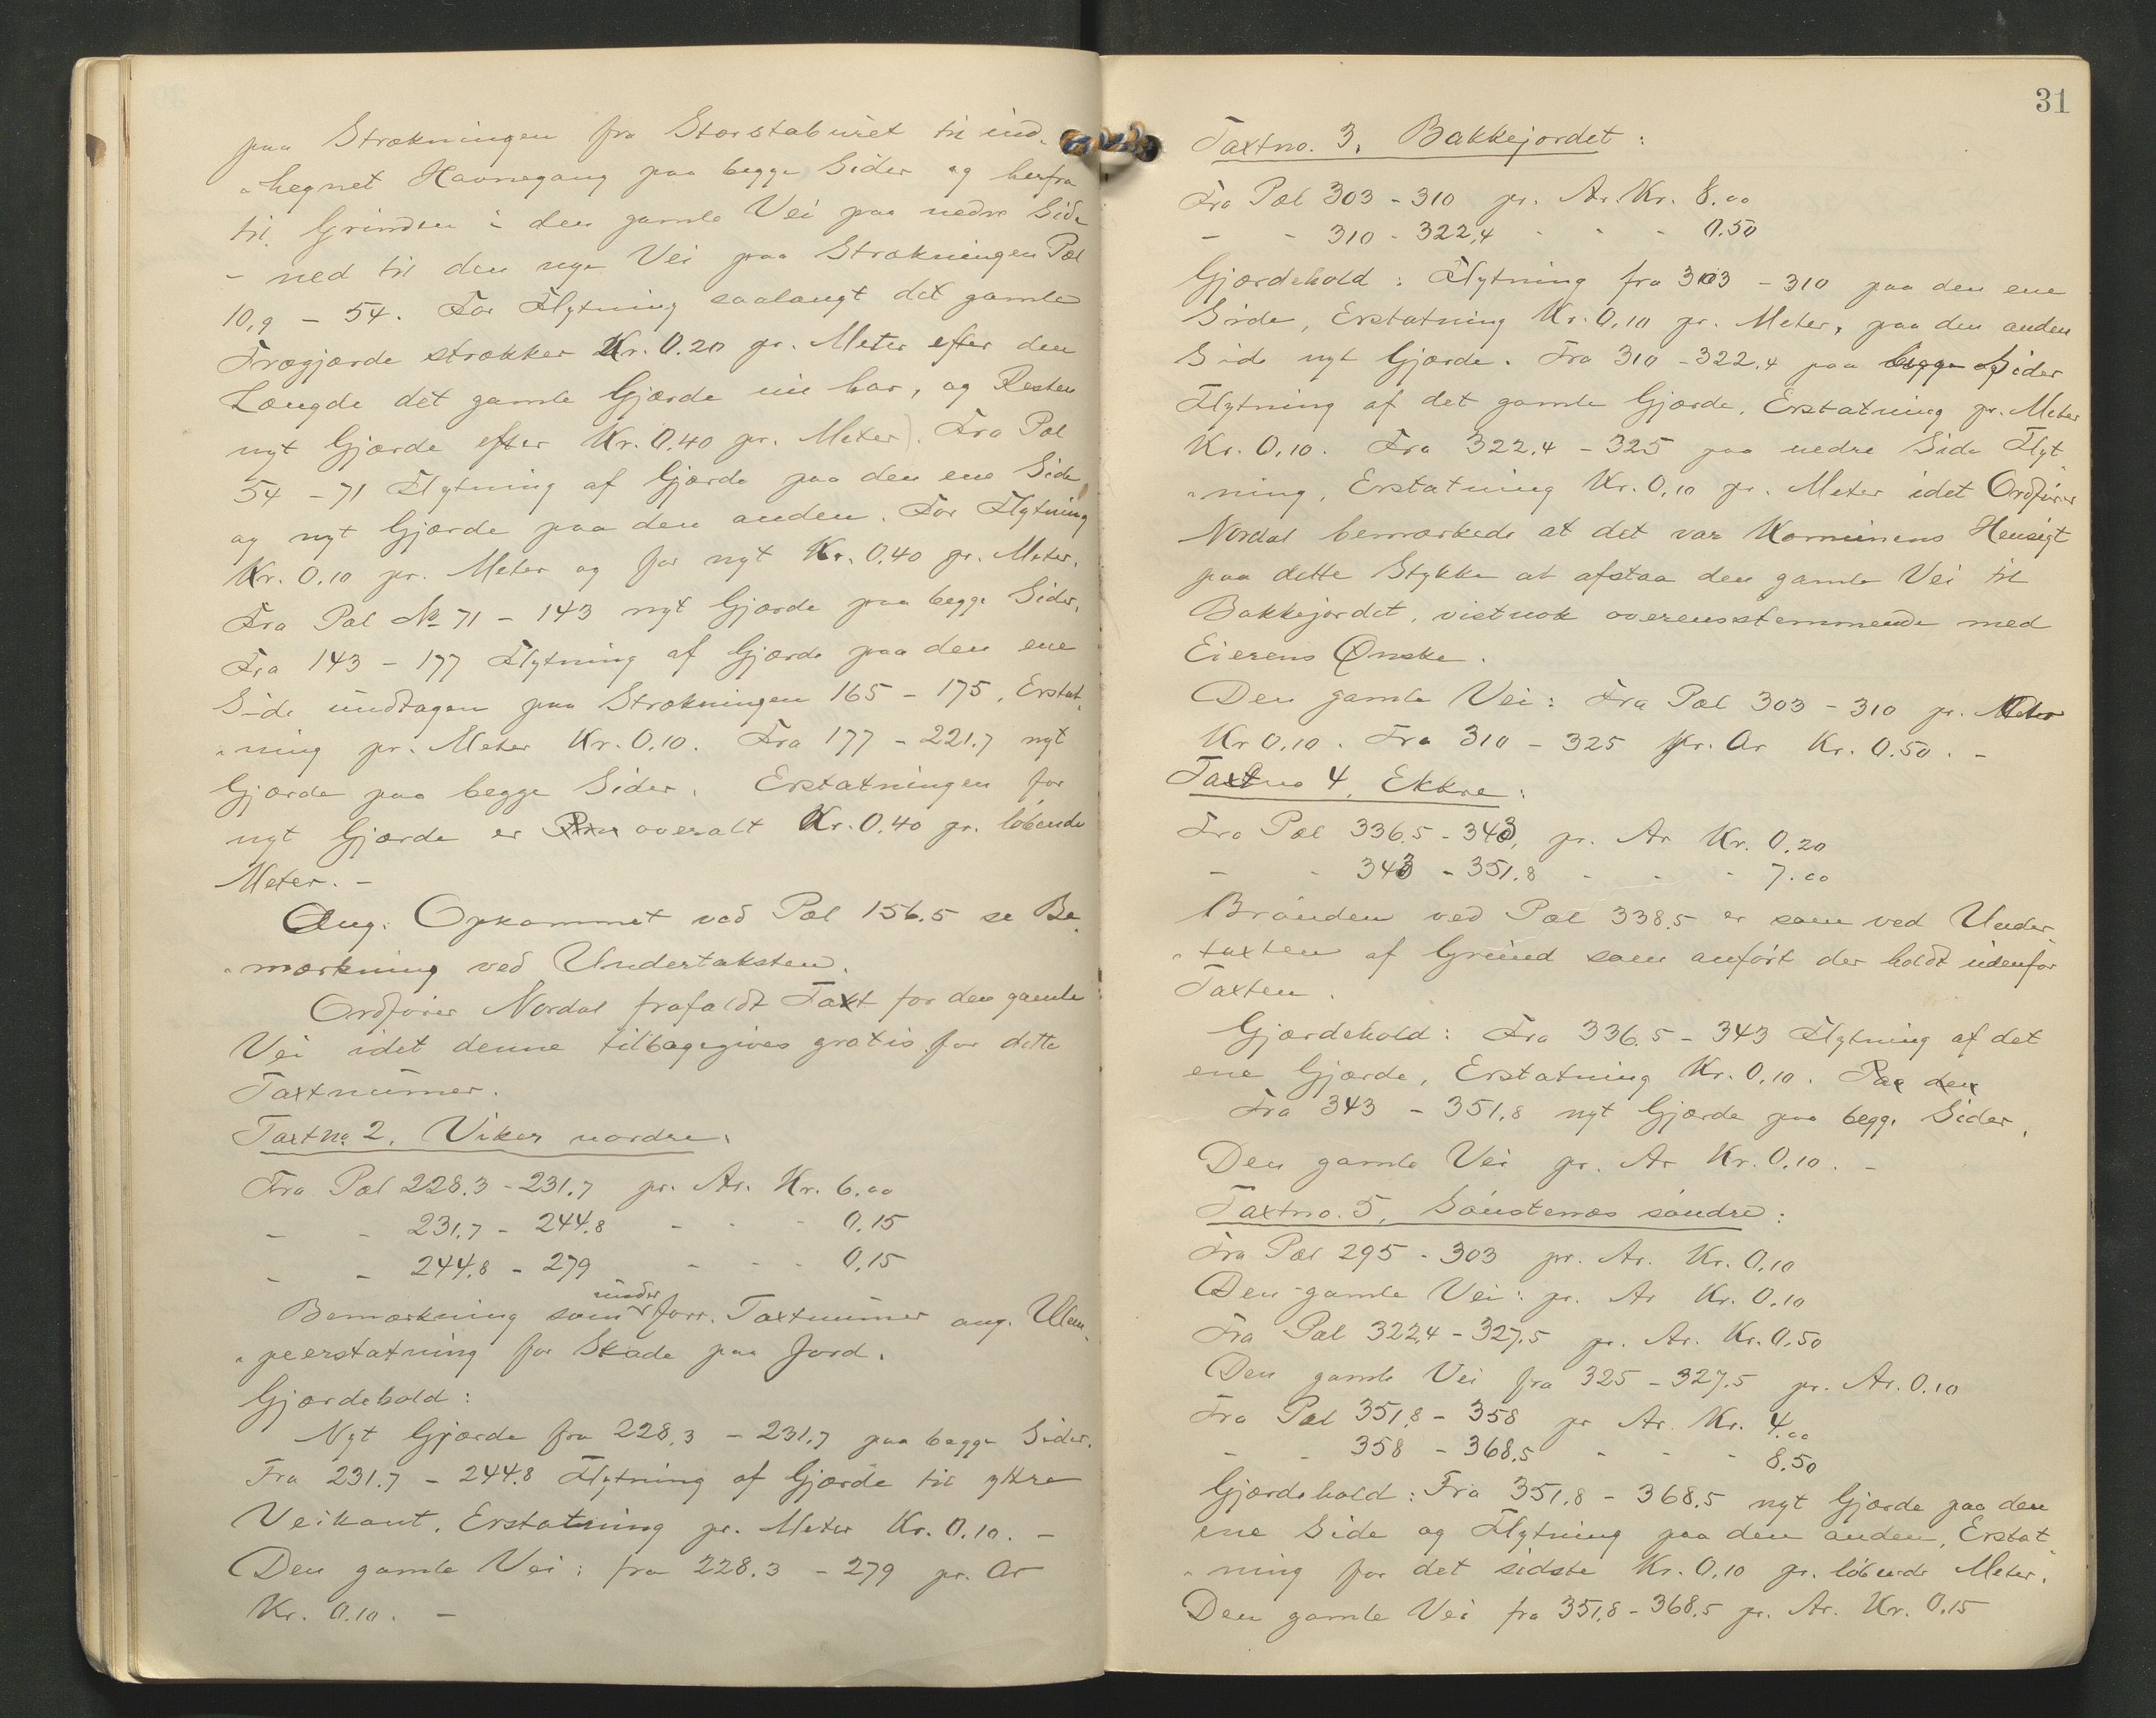 paa Strækningen fra Storstaburet til ind-
"hegnet Havnegang paa begge Sider og herfra
til Grinden i den gamle Vei paa nedre Side
- ned til den nye Vei paa Strækningen Pæl
10,9 - 54. For Flytning saalangt det gamle
Trægjærde strækker Kr. 0.20 pr. Meter efter den
Længde det gamle Gjærde nu har, og Resten
nyt Gjærde efter Kr. 0,40 pr. Meter). Fra Pæl
54 - 71 Flytning af Gjærde paa den ene Side
og nyt Gjærde paa den anden. For Flytning
Kr. 0.10 pr. Meter og for nyt Kr. 0.40 pr. Meter.
Fra Pæl No 71 - 143 nyt Gjærde paa begge Sider.
Fra 143 - 177 Flytning af Gjærde paa den ene
Side undtagen paa Strækningen 165 - 175, Erstat-
"ning pr. Meter Kr. 0,10. Fra 177 - 221.7 nyt
Gjærde paa begge Sider. Erstatningen for
nyt Gjærde er overalt Kr. 0.40 pr. løbende
Meter. -
Ang. Opkommet ved Pæl 156.5 se Be-
"mærkning ved Undertaksten.
Ordfører Nordal frafaldt Taxt for den gamle
Vei idet denne tilbagegives gratis for dette
Taxtnumer.
Taxtno. 2, Viker nordre.
Fra Pæl 228.3 - 231.7 pr. Ar. Kr. 6.00
- - 231,7 - 244.8 - - - 0.15
- - 244.8 - 279 - - - 0,15
under
Bemærkning som forr. Taxtnumer ang. Ulem-
"peerstatning for Skade paa Jord.
Gjærdehold:
Nyt Gjærde fra 228,3 - 231,7 paa begge Sider.
Fra 231.7 - 244.8 Flytning af Gjærde til ytre
Veikant. Erstatning pr. Meter Kr. 0.10. -
Den gamle Vei: fra 228.3 - 279 pr. Ar
Kr. 0.10. -
31
Taxtno. 3, Bakkejordet:
Fra Pæl 303 - 310 pr. Ar. Kr. 8.00
- - 310 - 322,4 - - - 0.50
Gjærdehold: Flytning fra 303 - 310 paa den ene
Side, Erstatning Kr. 0,10 pr. Meter, paa den anden
Side nyt Gjærde. Fra 310 - 322.4 paa begge Sider
Flytning af det gamle Gjærde, Erstatning pr. Meter
Kr. 0,10. Fra 322,4 - 325 paa nedre Side Flyt-
"ning, Erstatning Kr. 0,10 pr. Meter idet Ordfører
Nordal bemærkede at det var Komunens Hensigt
paa dette Stykke at afstaa den gamle Vei til
Bakkejordet, vistnok overensstemmende med
Eierens Ønske.
Den gamle Vei: Fra Pæl 303 - 310 pr. Meter
Kr 0,10. Fra 310 - 325 pr. Ar Kr. 0.50. -
Taxtno 4, Ekkre:
Fra Pæl 336.5 - 343, pr. Ar Kr. 0.20
- - 343 - 351.8 - - - 7.00
Brønden ved Pæl 338.5 er som ved Under-
"taxten af Grund som anført der holdt udenfor
Taxten.
Gjærdehold: Fra 336.5 - 343 Flytning af det
ene Gjærde, Erstatning Kr. 0,10. Paa den
Fra 343 - 351,8 nyt Gjærde paa begge Sider.
Den gamle Vei pr. Ar Kr. 0.10. -
Taxtno. 5, Sønstenæs søndre:
Fra Pæl 295 - 303 pr. Ar. Kr. 0,10
Den gamle Vei: pr. Ar Kr. 0,10
Fra Pæl 322,4 - 327.5 pr. Ar. Kr. 0,50
Den gamle Vei fra 325 - 327.5 pr. Ar. 0.10
Fra Pæl 351,8 - 358 pr Ar. Kr. 4.00
- - 358 - 368.5 - - - 8.50
Gjærdehold: Fra 351.8 - 368.5 nyt Gjærde paa den
ene Side og Flytning paa den anden, Erstat-
"ning for det sidste Kr. 0,10 pr. løbende Meter.
Den gamle Vei fra 351,8 - 368.5 pr. Ar. Kr. 0,15